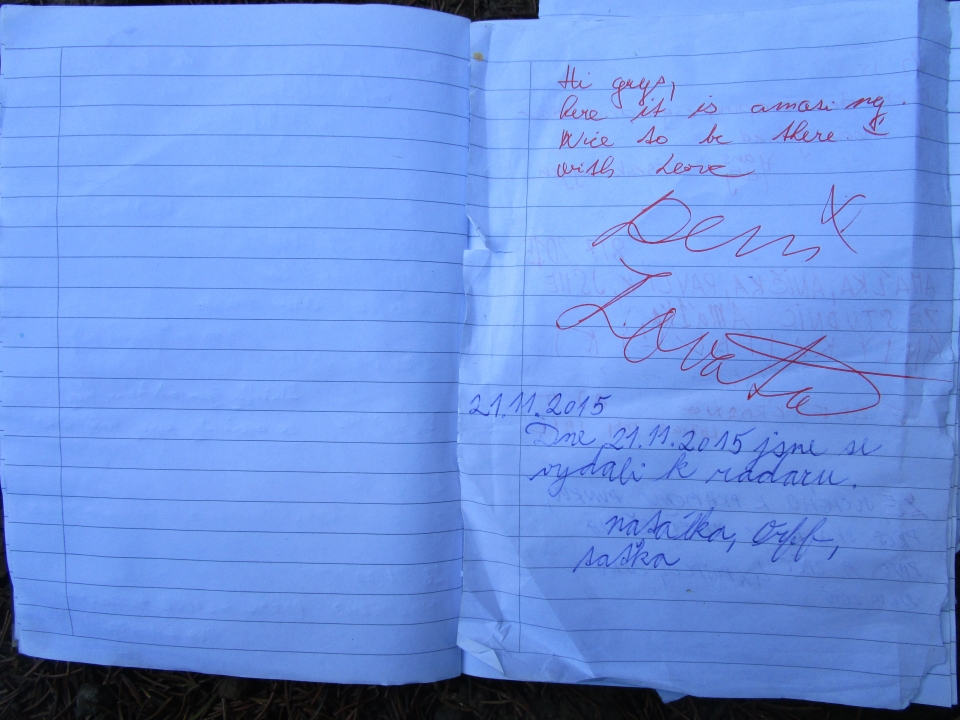 Hi guys,
here it is amasing.
Nice to be there
with Leove
Demi
Lovato
21.11.2015
Dne 21.11.2015 jsme se
vydali k radaru.
nataťka, Orff,
saťka